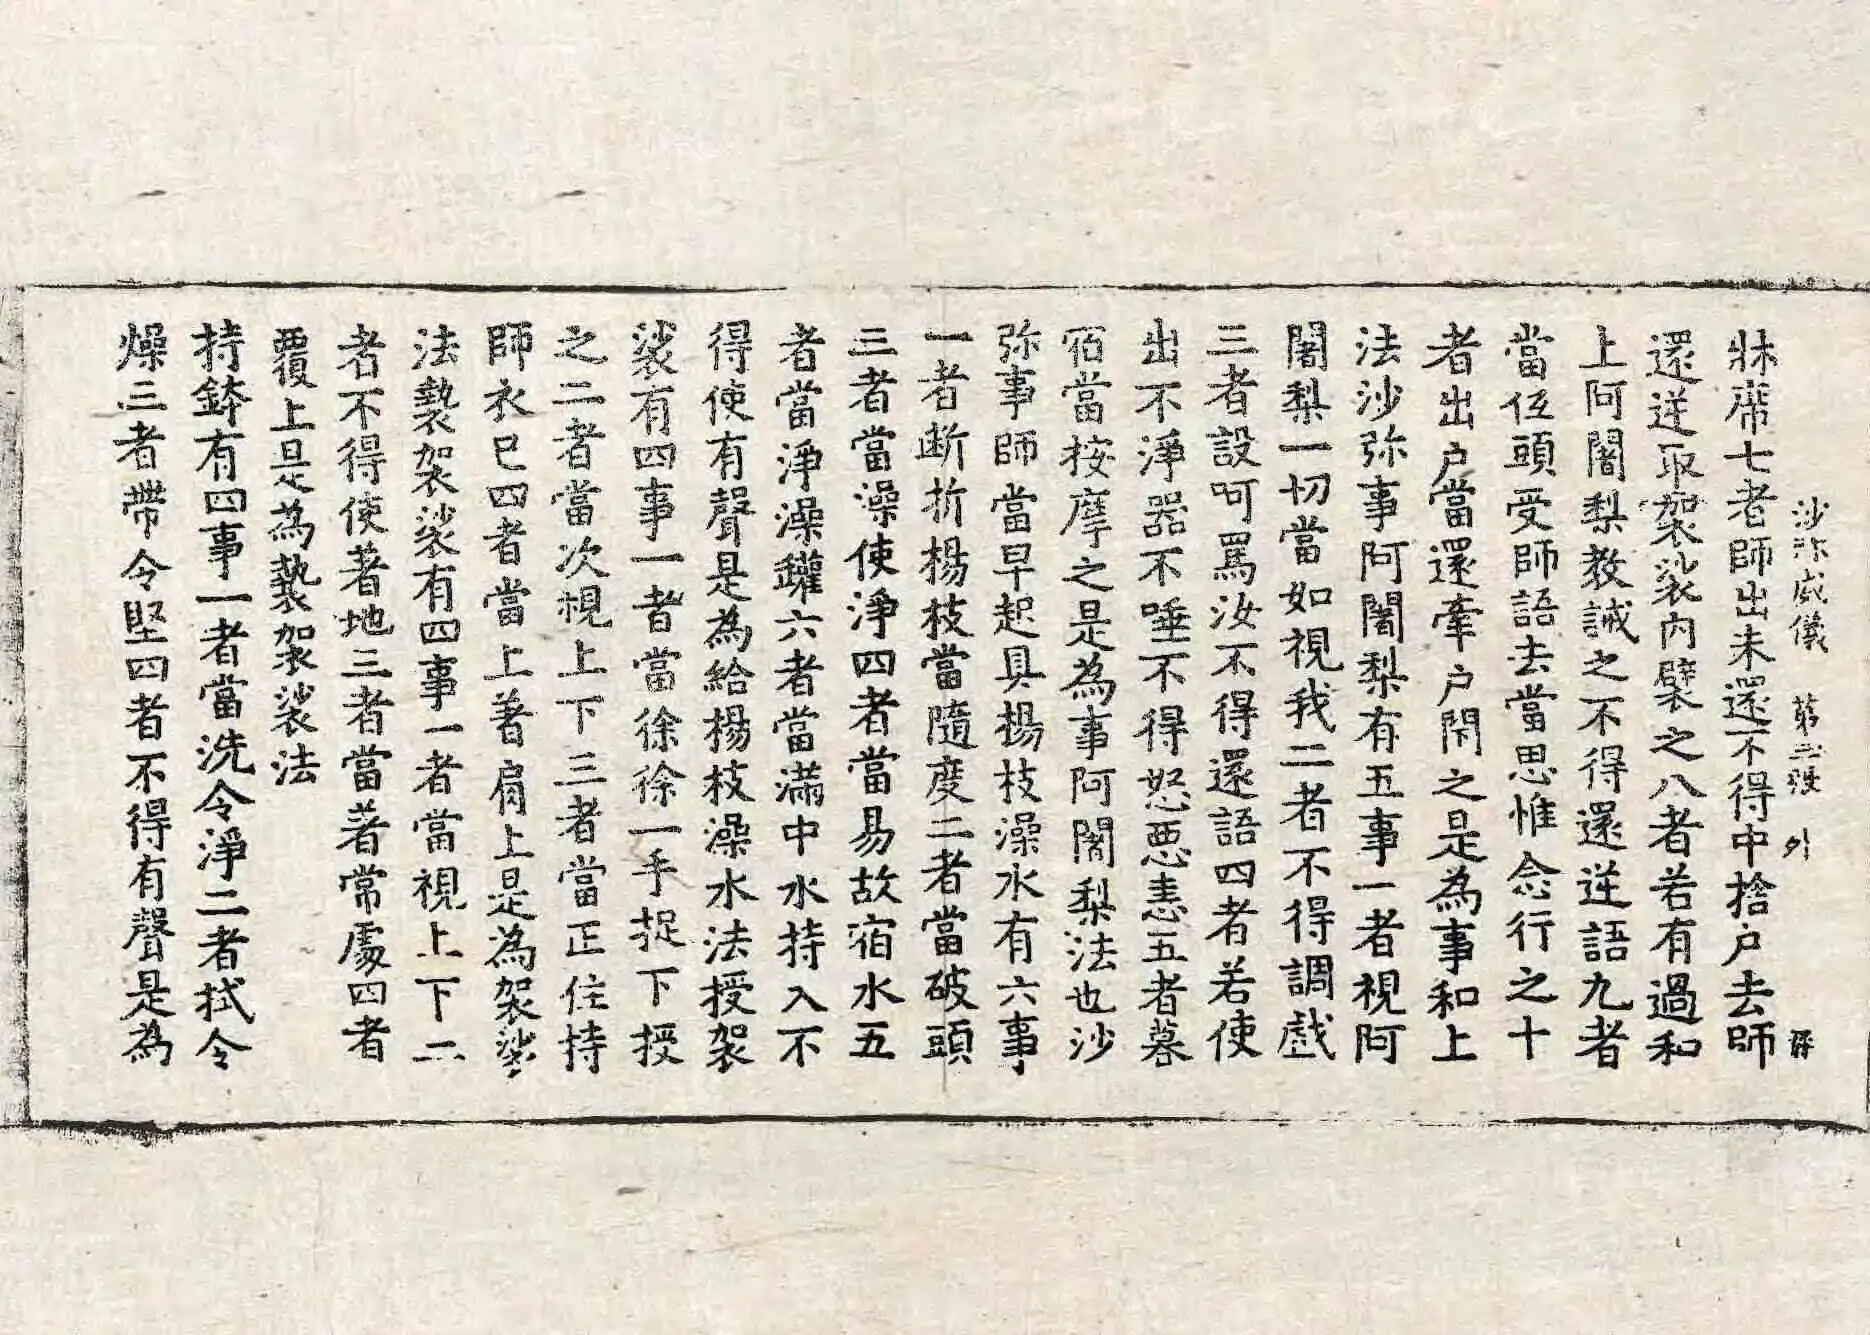 沙弥威儀 第三張 外
牀席七者師出未還不得中捨户去師
還逆取袈裟內襞之八者若有過和
上阿闍梨教誡之不得還逆語九者
當低頭受師語去當思惟念行之十
者出户當還牽户閇之是為事和上
法沙弥事阿闍梨有五事一者視阿
闍梨一切當如視我二者不得調戲
三者設呵罵汝不得還語四者若使
出不淨器不唾不得怒惡恚五者暮
宿當按摩之是為事阿闍梨法也沙
弥事師當早起具楊枝澡水有六事
一者断折楊枝當隨度二者當破頭
三者當澡使淨四者當易故宿水五
者當淨澡鑵六者當滿中水持入不
得使有聲是為給楊枝澡水法授袈
裟有四事一者當徐徐一手捉下授
之二者當次視上下三者當正住持
師衣已四者當上著肩上是為袈裟
法襞袈裟有四事一者當視上下二
者不得使著地三者當著常處四者
覆上是為襞袈裟法
持鉢有四事一者當洗令淨二者拭令
燥三者帶令堅四者不得有聲是為